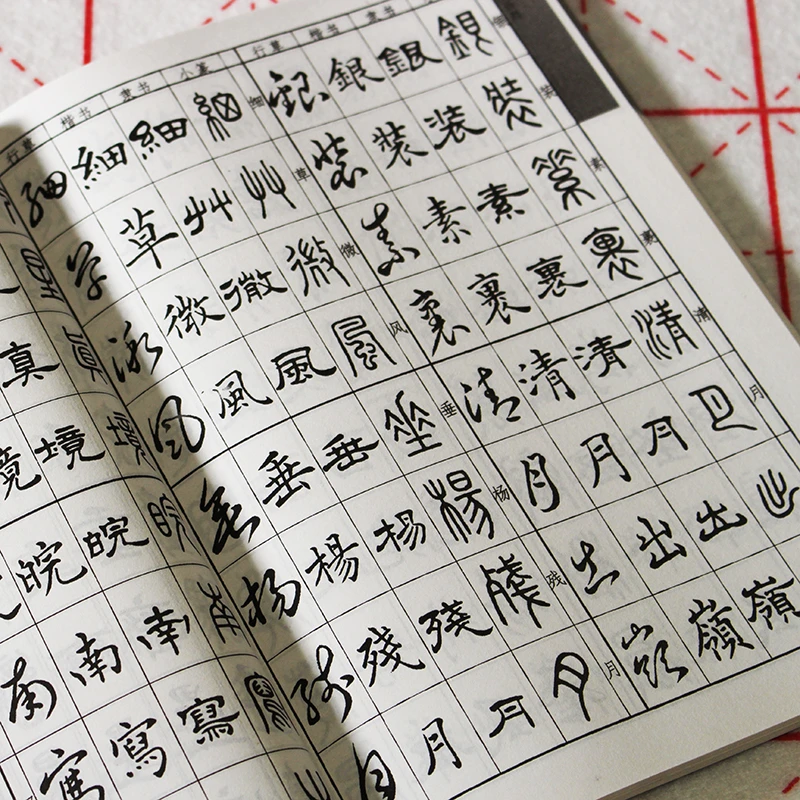 行草 楷书 隶书 小篆 行草 楷书 隶书
銀 銀 銀 銀
裝 裝 裝 裝 装
素 素 素 素 素
裹 裹 裹 裹 裹
清 清 清 清 清
月 月 月 月 月
出 出 出 出
嶺 嶺 嶺
細 細 細 細 细
草 草 艸 艸 草
微 微 微 微 微
風 風 風 風 风
垂 垂 垂 垂 垂
楊 楊 楊 楊 杨
殘 殘 殘 殘 残
月 月 月 月 月
真 真
境 境 境
皖 皖 皖
南 南 南 南
寫 寫 寫 寫